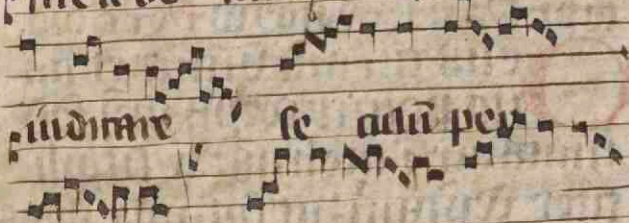 iudicare se culū per